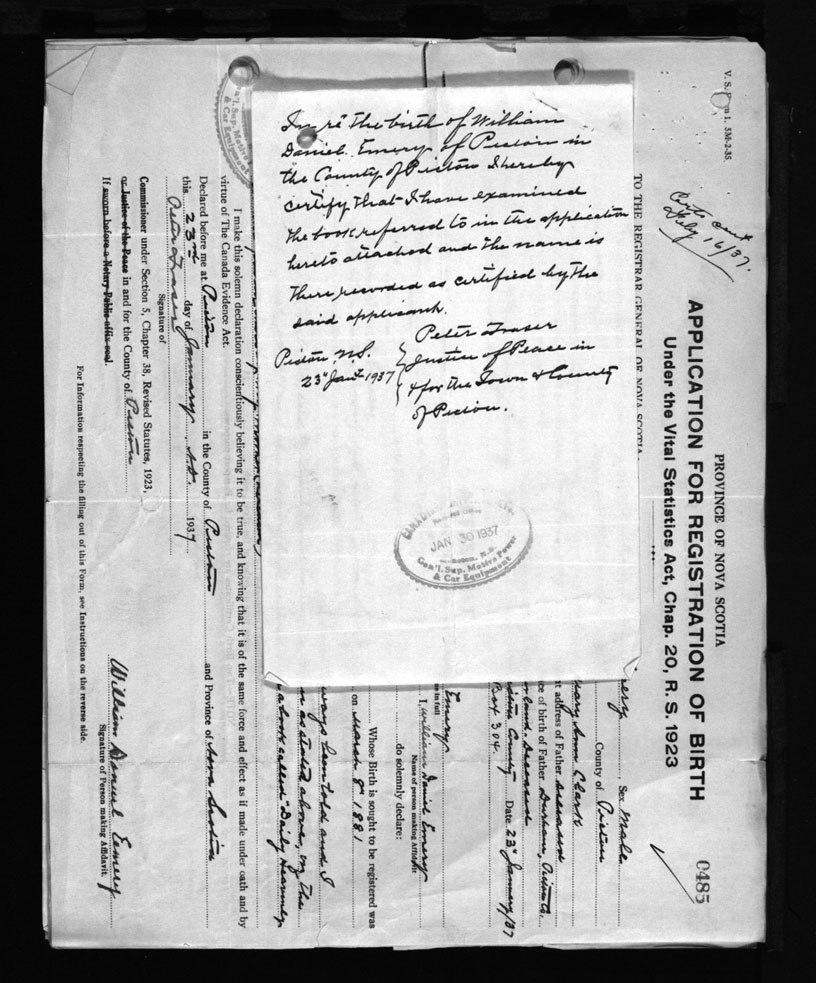 In re the birth of William
Daniel Emery of Pictou in
the County of Pictou I hereby
certify that I have examined
the book referred to in the application
hereto attached and the name is
there recorded as certified by the
said applicant.
Peter Fraser
Justice of Peace in
& for the Town & County
of Pictou.
Pictou N.S.
23rd Jany 1937
JAN 30 1937
Gen'l. Sup. Motive Power
& Car Equipment
V. S. Form 1. 5M-2-35
Certs sent
July 16/37.
PROVINCE OF NOVA SCOTIA
APPLICATION FOR REGISTRATION OF BIRTH
Under the Vital Statistics Act, Chap. 20, R. S. 1923
0485
TO THE REGISTRAR GENERAL OF NOVA SCOTIA:
Sex Male
County of Pictou
Mary Ann Clark
address of Father deceased
ce of birth of Father Durham, Pictou Co.
deceased
County Date 23rd January/37
Box 304
Emery
in full
I, William Daniel Emery
Name of person making Affidavit
do solemnly declare:
Whose Birth is sought to be registered was
on March 8th 1881
ways been told and I
as stated above, in the
a book called "Daily Heavenly
I make this solemn declaration conscientiously believing it to be true, and knowing that it is of the same force and effect as if made under oath and by
virtue of The Canada Evidence Act.
Declared before me at Pictou in the County of Pictou and Province of Nova Scotia
this 23rd day of January A.D. 1937
Peter Fraser
Signature of
Commissioner under Section 5, Chapter 38, Revised Statutes, 1923,
or Justice of the Peace in and for the County of Pictou
If sworn before a Notary Public affix seal.
William Daniel Emery
Signature of Person making Affidavit.
For Information respecting the filling out of this Form, see Instructions on the reverse side.
Gen'l. Sup. Motive
& Car Equipment